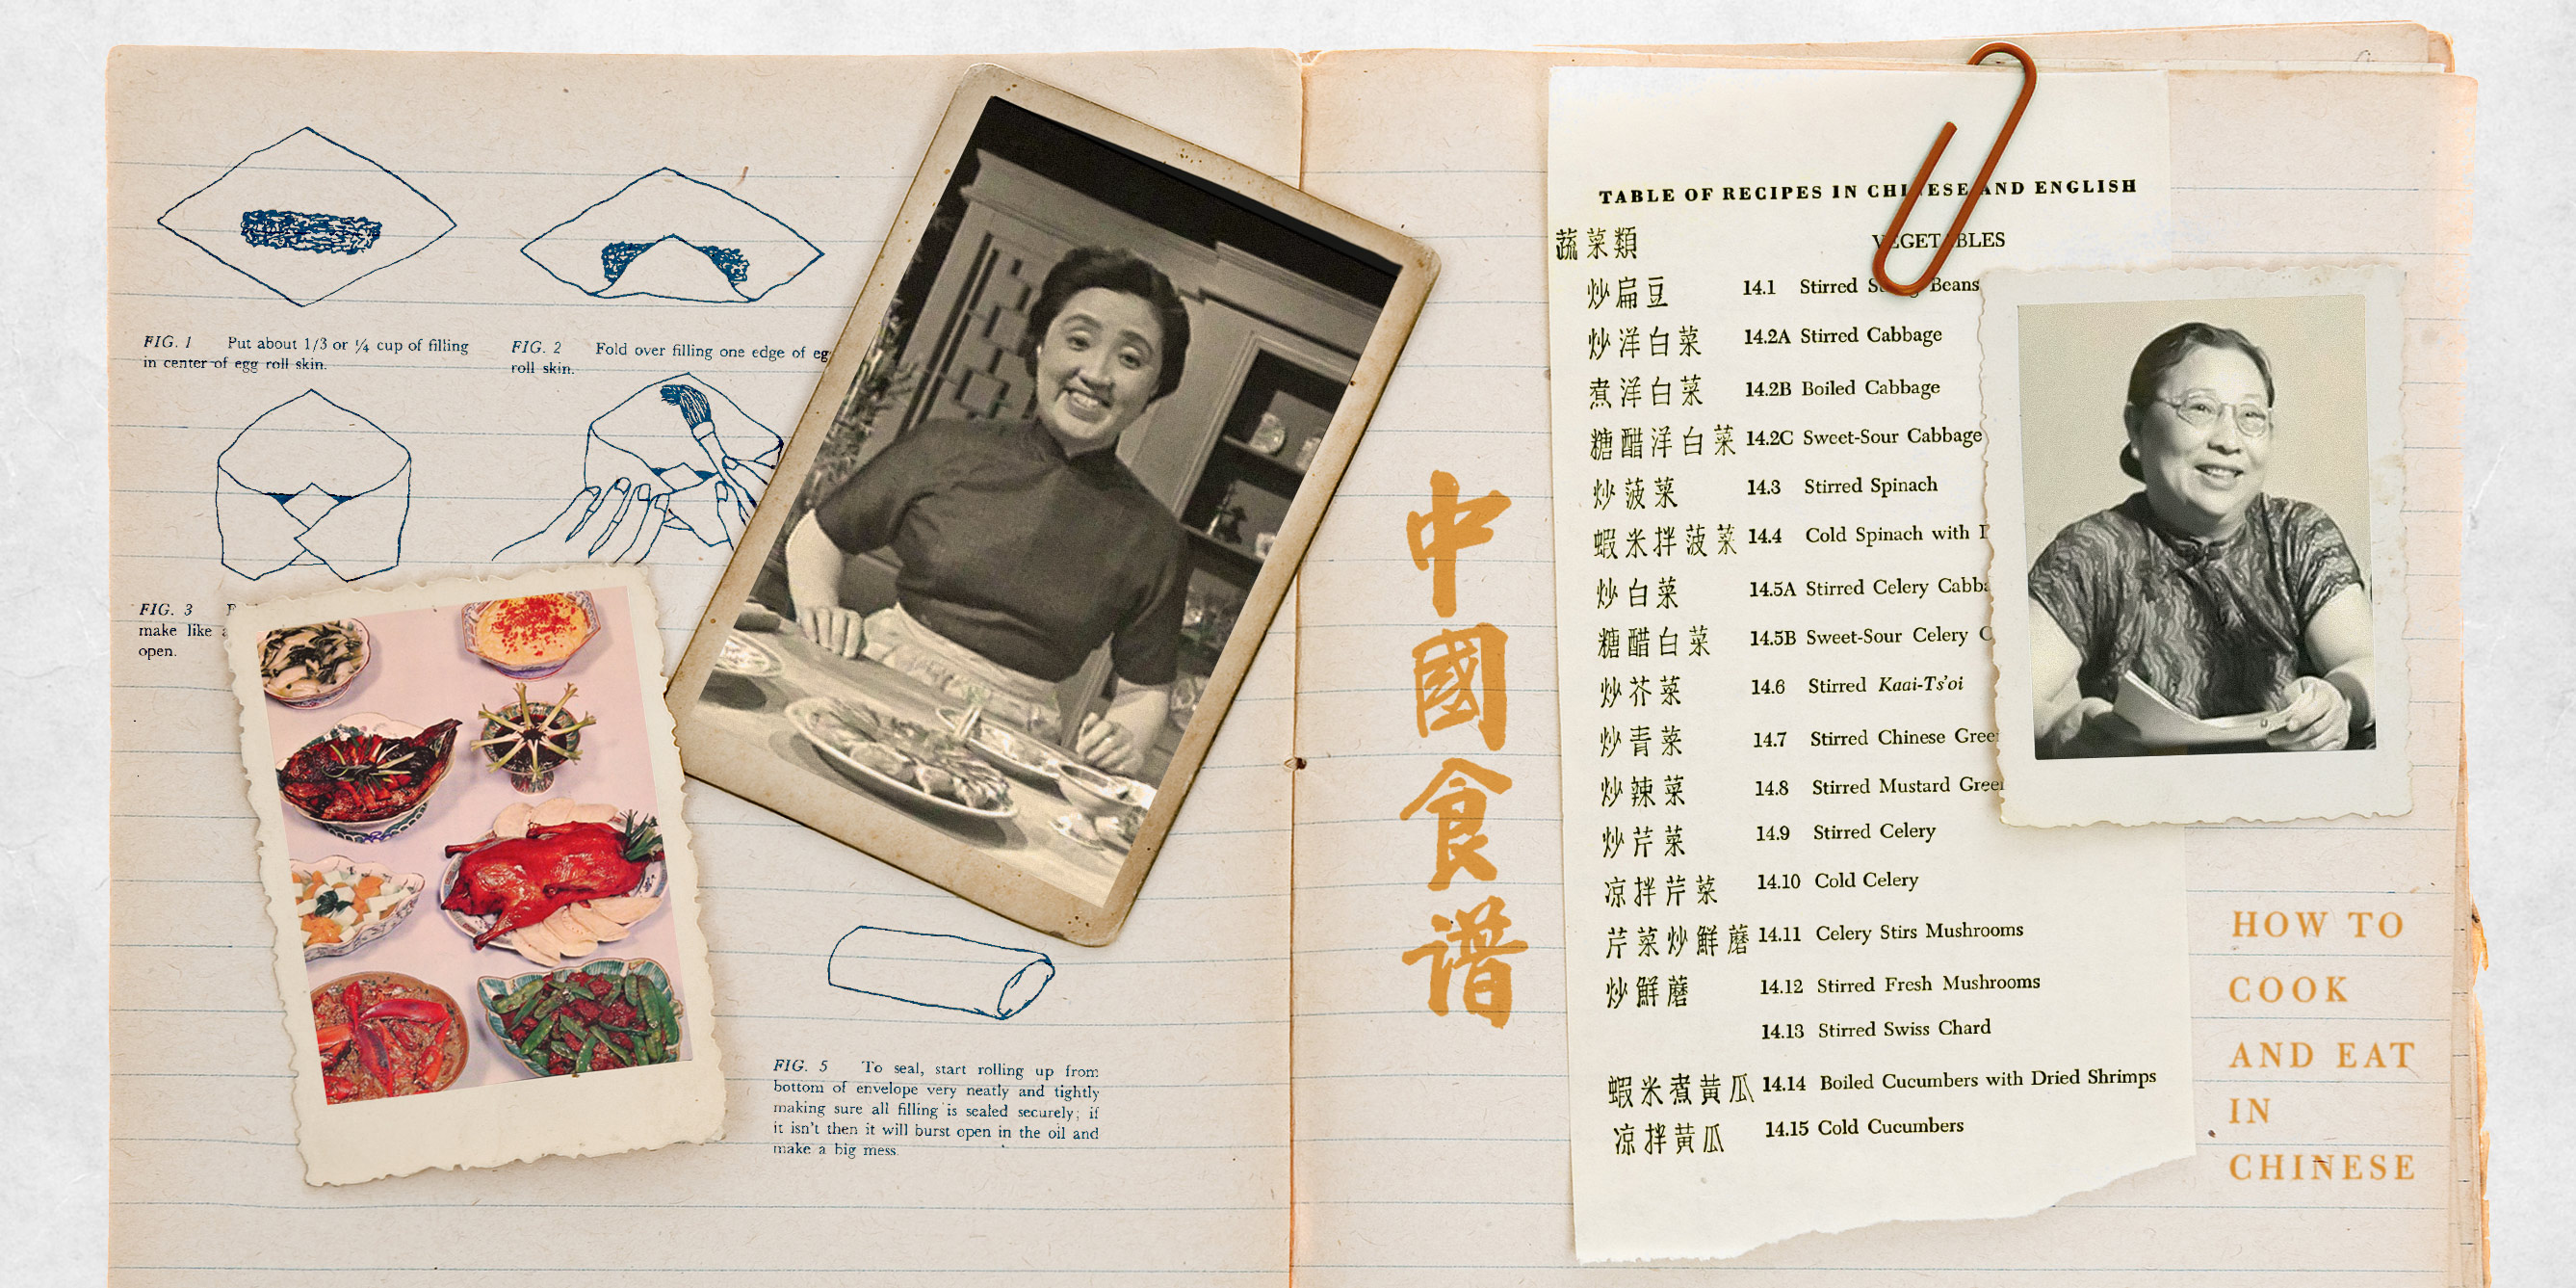 FIG. 1 Put about 1/3 or 1/4 cup of filling
in center of egg roll skin.
FIG. 2 Fold over filling one edge of eg
roll skin.
FIG. 3
make like
open.
FIG. 5 To seal, start rolling up from
bottom of envelope very neatly and tightly
making sure all filling is sealed securely; if
it isn't then it will burst open in the oil and
make a big mess.
中國食谱
TABLE OF RECIPES IN CHINESE AND ENGLISH
蔬菜類 VEGETABLES
炒扁豆 14.1 Stirred String Beans
炒洋白菜 14.2A Stirred Cabbage
煮洋白菜 14.2B Boiled Cabbage
糖醋洋白菜 14.2C Sweet-Sour Cabbage
炒菠菜 14.3 Stirred Spinach
蝦米拌菠菜 14.4 Cold Spinach with
炒白菜 14.5A Stirred Celery Cabba
糖醋白菜 14.5B Sweet-Sour Celery C
炒芥菜 14.6 Stirred Kaai-Ts'oi
炒青菜 14.7 Stirred Chinese Gree
炒辣菜 14.8 Stirred Mustard Gree
炒芹菜 14.9 Stirred Celery
凉拌芹菜 14.10 Cold Celery
芹菜炒鮮蘑 14.11 Celery Stirs Mushrooms
炒鮮蘑 14.12 Stirred Fresh Mushrooms
14.13 Stirred Swiss Chard
蝦米煮黃瓜 14.14 Boiled Cucumbers with Dried Shrimps
凉拌黃瓜 14.15 Cold Cucumbers
HOW TO
COOK
AND EAT
IN
CHINESE